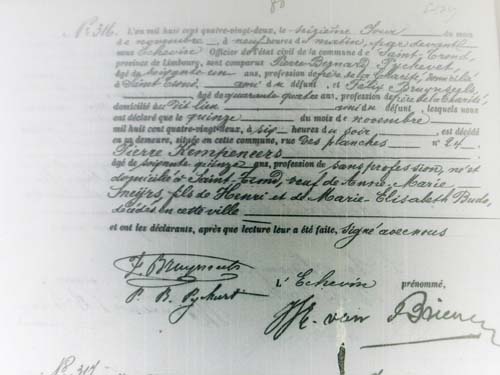 80
N° 316. L'an mil huit cent quatre-vingt-deux, le seizième jour du mois
de novembre, à neuf heures du matin, par devant
nous Echevin Officier de l'état civil de la commune de Saint-Trond,
province de Limbourg, sont comparus Pierre-Bernard Pychevet,
âgé de soixante-un ans, profession de frère de la Charité, domicilié
à Saint-Trond, ami du défunt et Félix Bruyneels,
âgé de quarante quatre ans, profession de frère de la Charité
domicilié au dit lieu ami du défunt, lesquels nous
ont déclaré que le quinze du mois de novembre
mil huit cent quatre-vingt-deux, à six heures du soir, est décédé
en sa demeure, située en cette commune, rue des planches n° 24,
Pierre Kempeneers
âgé de soixante quinze ans, profession de sans profession, né et
domicilié à Saint-Trond, veuf de Anne-Marie
Smeÿrs, fils de Henri et de Marie-Elisabeth Budo,
décédés en cette ville
et ont les déclarants, après que lecture leur a été faite, signé avec nous
F. Bruyneels L'Echevin prénommé,
P. B. van Brienen
N° 317.